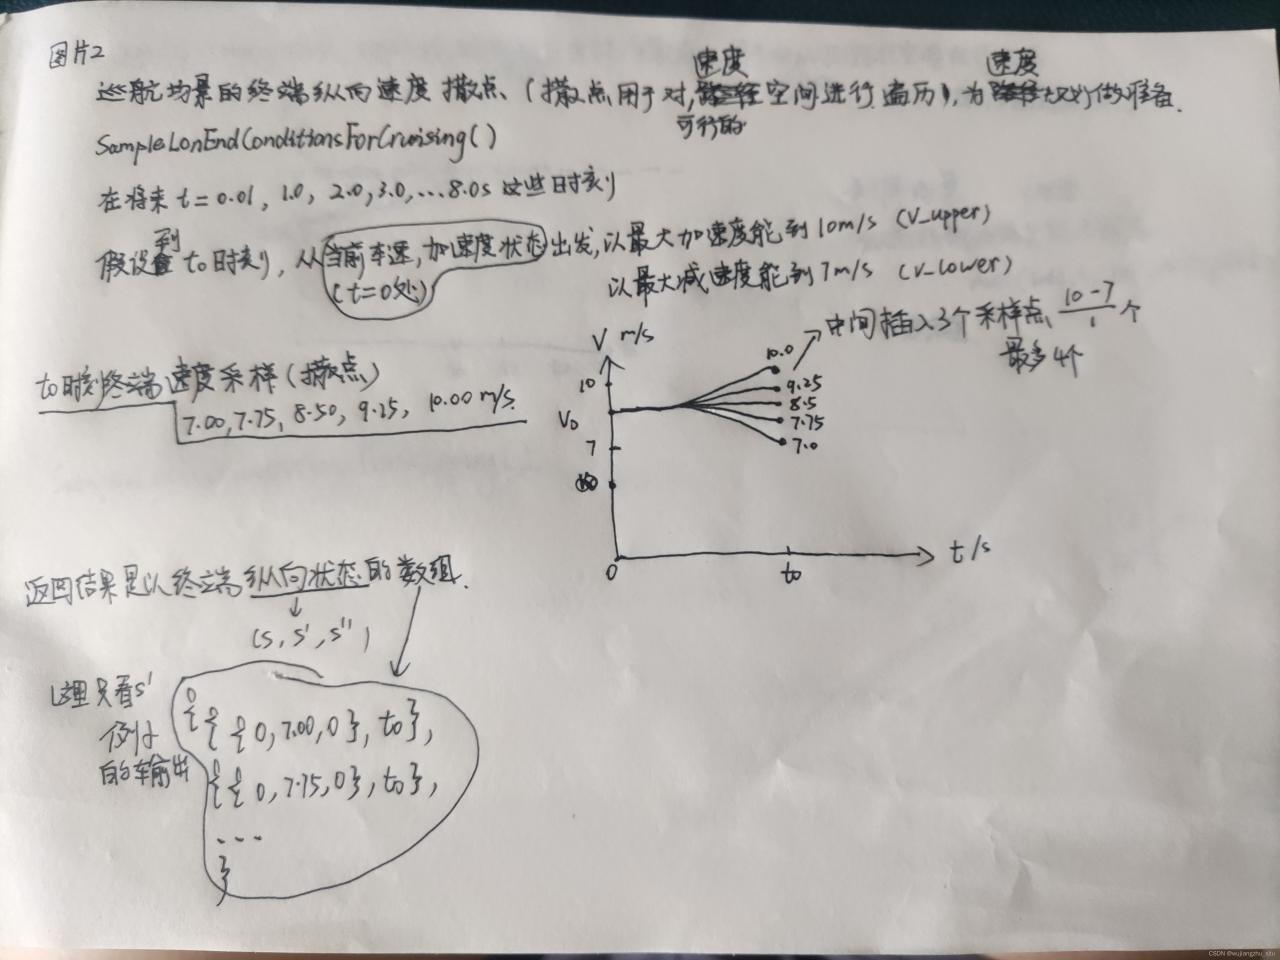 图片2
巡航场景的终端纵向速度撒点、(撒点用于对可行的速度空间进行遍历),为速度规划做准备.
SampleLonEndConditionsForCruising()
在将来 t=0.01, 1.0, 2.0, 3.0, ...8.0s 这些时刻
假设到 t0时刻, 从当前车速,加速度状态出发,以最大加速度能到10m/s (V_upper)
(t=0处)
以最大减速度能到7m/s (V_lower)
中间插入3个采样点、10-7/1个
最多4个
t0时刻终端速度采样(撒点)
7.00, 7.75, 8.50, 9.25, 10.00 m/s.
V m/s
10
V0
7
10.0
9.25
8.5
7.75
7.0
0
t0
t/s
返回结果是以终端纵向状态的数组.
(s, s', s'')
这里只看s'
例计的输出
{{{0, 7.00, 0}, t0},
{{0, 7.75, 0}, t0},
...
}
CSDN @wujiangzhu_xjtu